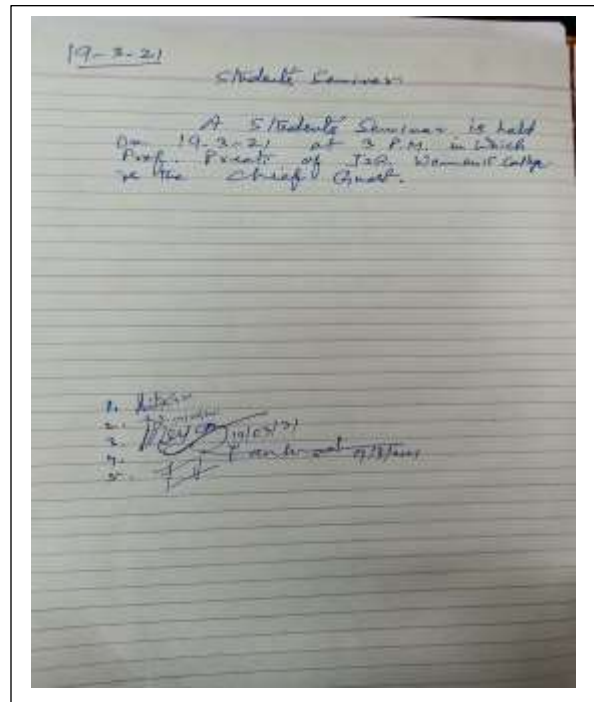 19-3-21
Students Seminar
A Students Seminar is held
on 19.3-21 at 3 P.M. in which
Prof. Preeti of Women's College
is the Chief Guest.
1.
2.
3. 19/03/21
4.
5.